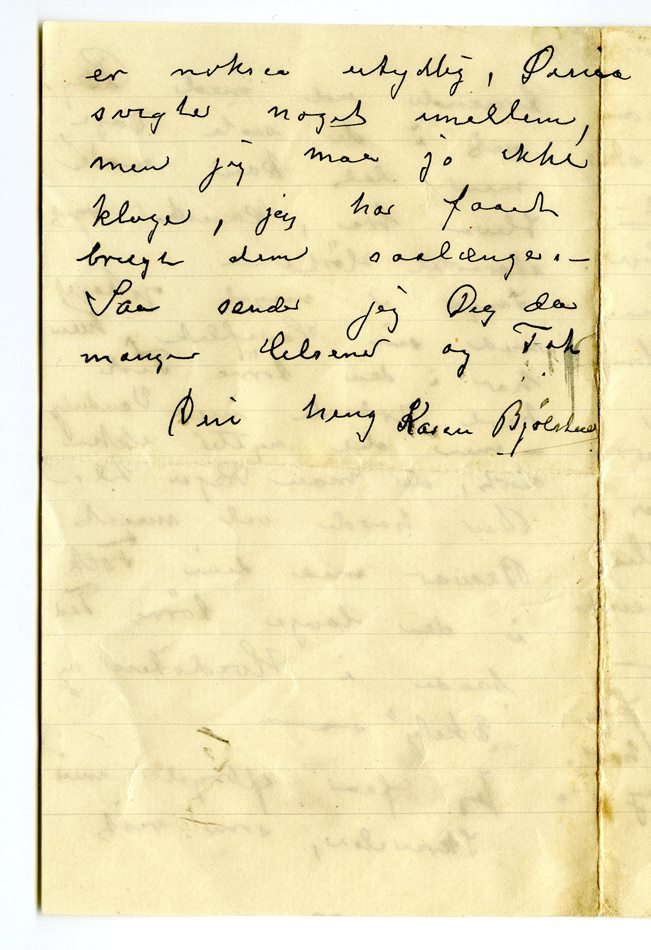 er noksaa utydelig, Øinene
svigter noget imellem,
men jeg maa jo ikke
klage, jeg har faaet
brugt dem saalænge. –
Saa sender jeg Dig da
mange Hilsener og Tak
Din heng Karen Bjølstad